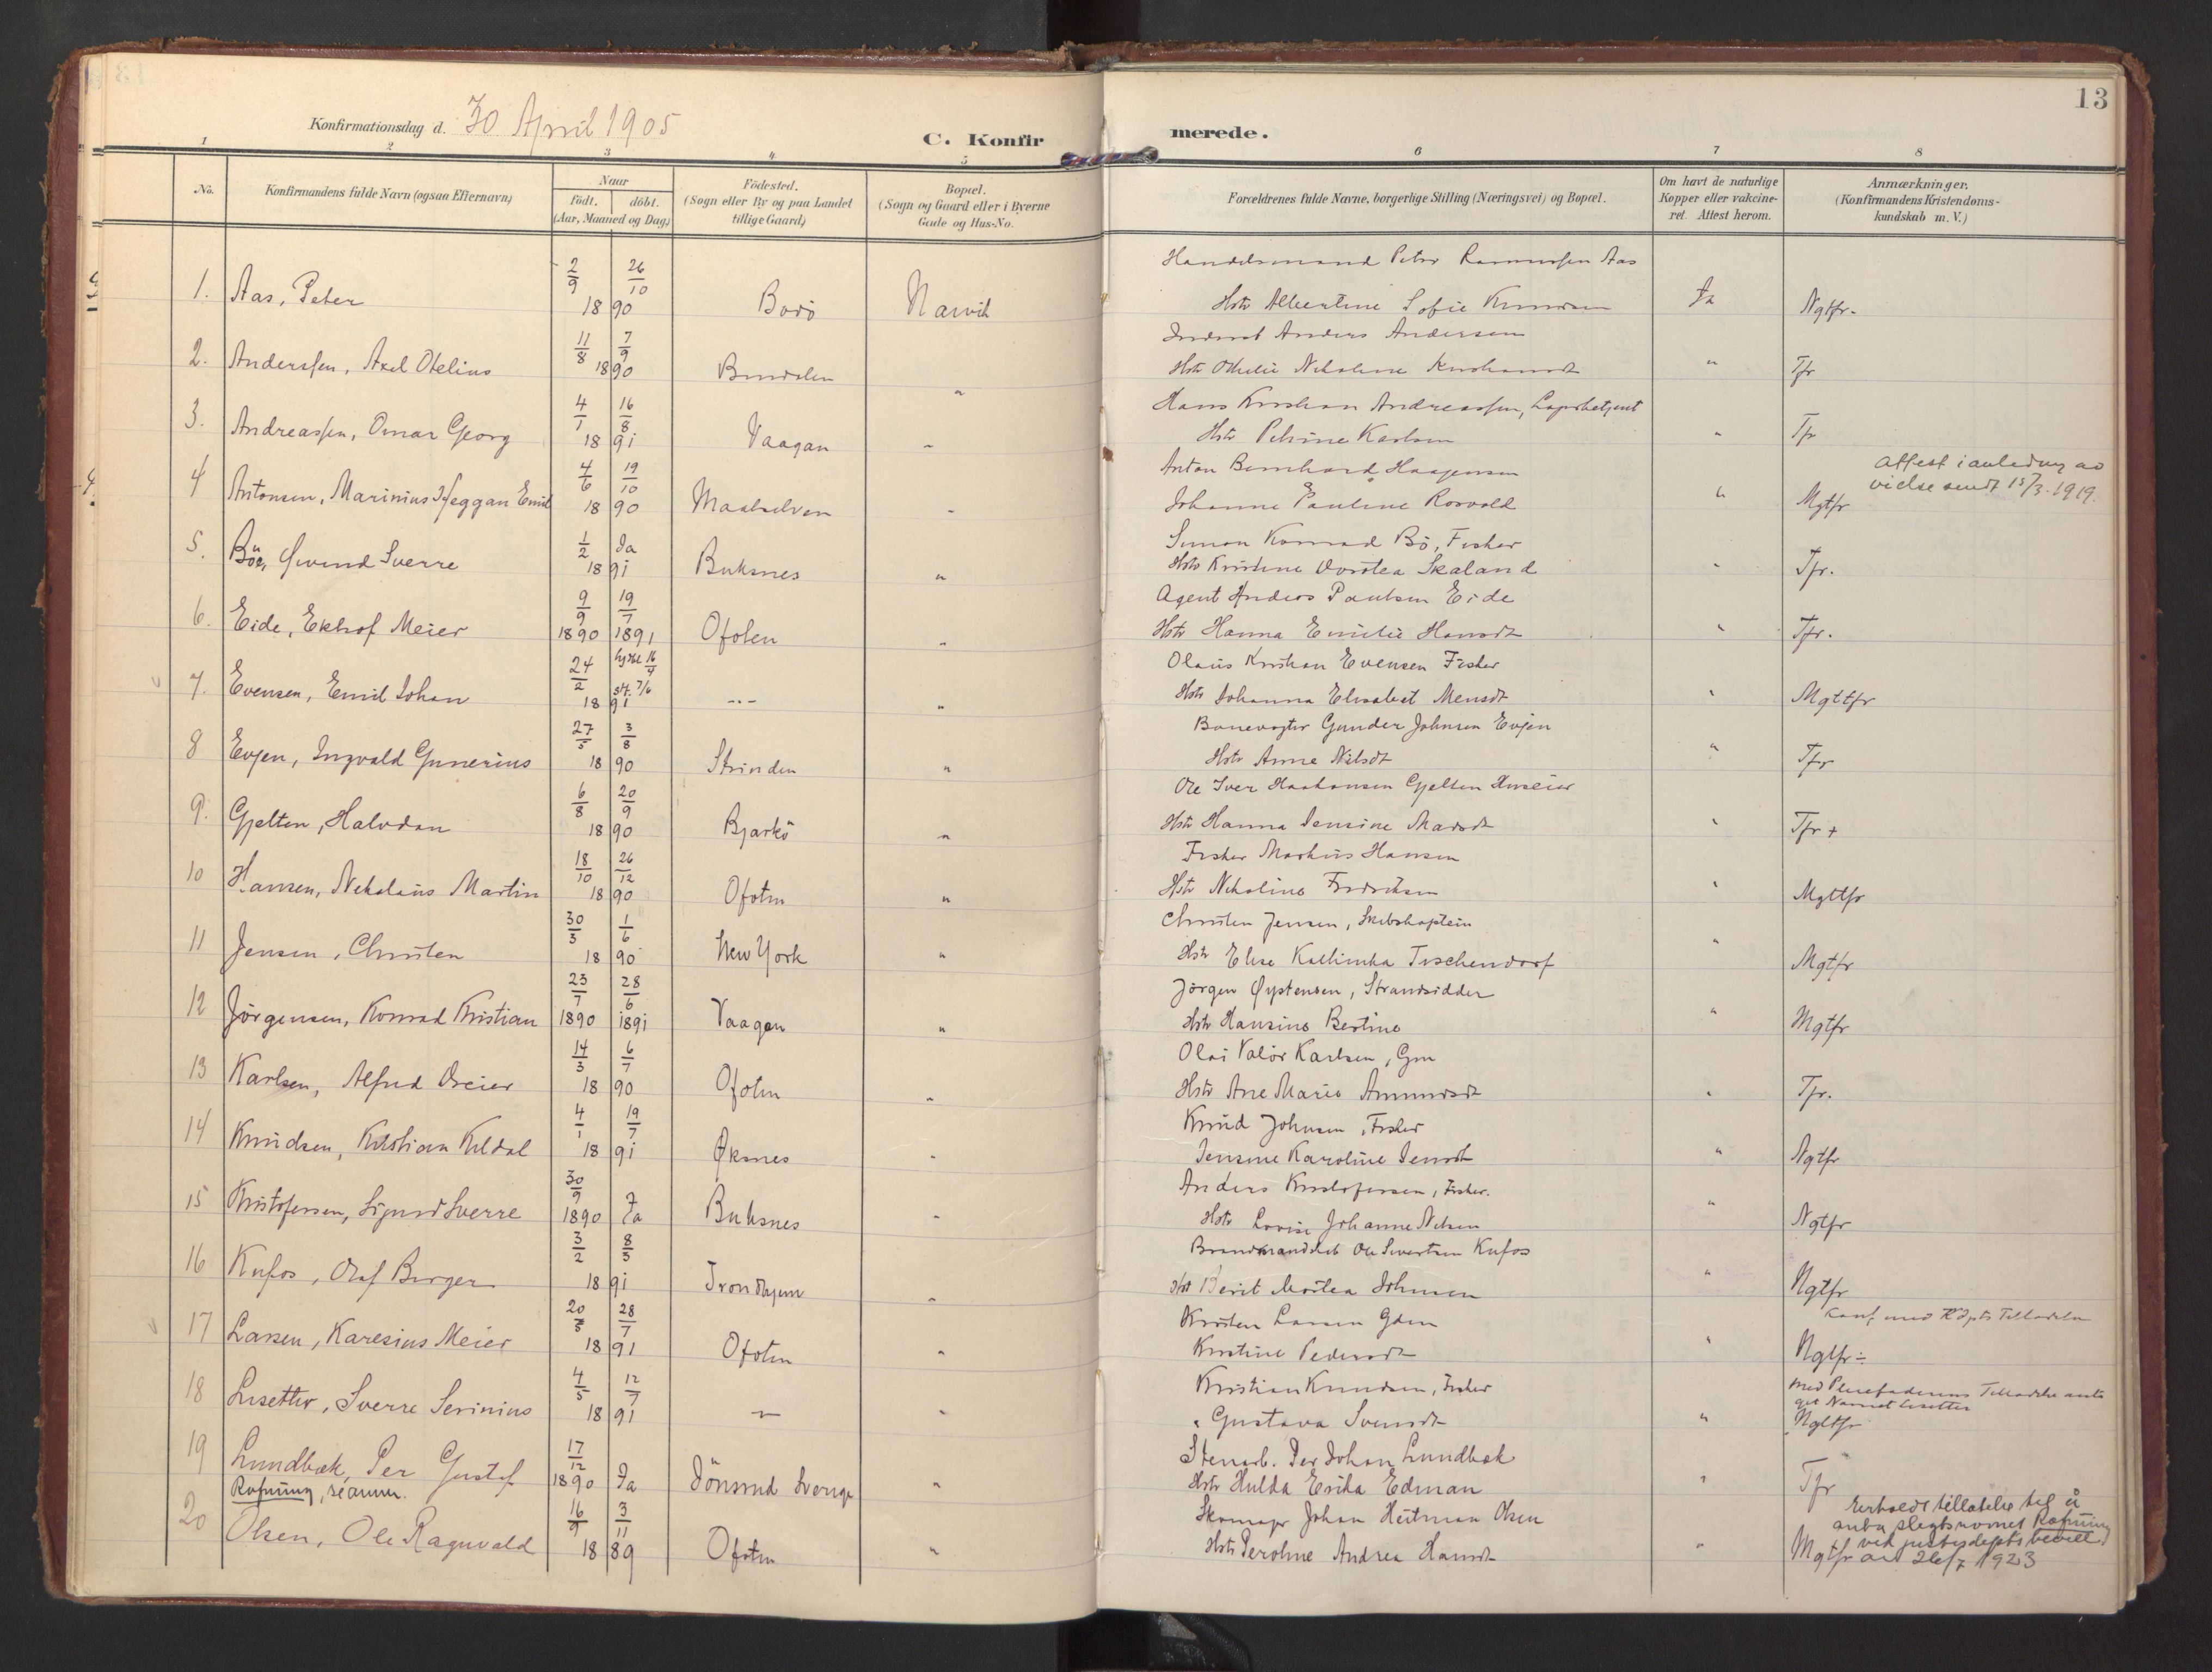 13
Konfirmationsdag d. 30 April 1905
C. Konfirmerede.
1 2 3 4 5 6 7 8
No.
Konfirmandens fulde Navn (ogsaa Efternavn)
Naar
født. døbt.
(Aar, Maaned og Dag)
Födested.
(Sogn eller By og paa Landet
tillige Gaard)
Bopæl.
(Sogn og Gaard eller i Byerne
Gade og Hus-No.
Forældrenes fulde Navne, borgerlige Stilling (Næringsvei) og Bopæl.
Om havt de naturlige
Kopper eller vakcine-
ret. Attest herom.
Anmærkninger.
(Konfirmandens Kristendoms-
kundskab m. V.)
Handelsmand Peter Rasmussen Aas
1. Aas, Peter 2/9 26/10 1890 Bodö Narvik Hstr Albertine Sofie Knudsen Ja Ngtfr.
Anders Andersen
2. Anderssen, Axel Otelius 11/8 7/9 1890 Bindalen " Hstr Othelie Nikoline " Tfr
Hans Kristian Andreassen, Lagerbetjent
3. Andreassen, Omar Georg 4/1 16/8 1891 Vaagan " Hstr Petrine Karlsen " Tfr
Anton Bernhard Haagensen
4 Antonsen, Marinius Heggan Emil 4/6 19/10 1890 Maalselven " Johanne Pauline Rosvold " Mgtfr
Attest i anledning av
vielse sendt 15/3. 1919.
Simon Konrad Bö, Fisker
5. Böe, Øivind Sverre 1/2 Ja 1891 Buksnes " Hstr Kristine Dorotea Skaland " Tfr.
Agent Anders Paulsen Eide
6. Eide, Ekhof Meier 9/9 1890 19/7 1891 Ofoten " Hstr Hanna Emilie Hansdt " Tfr.
Olaus Kristian Evensen Fisker
7. Evensen, Emil Johan 24/2 hjdbt 16/4 st. 7/6 1891 -"- " Hstr Johanna Elisabet Mensdt " Mgttfr
Banevogter Gunder Johnsen Evjen
8 Evjen, Ingvald Gunerius 27/5 3/8 1890 Strinden " Hstr Anne Nilsdt " Tfr
Ole Iver Haakonsen Gjelten Huseier
9. Gjelten, Halvdan 6/8 20/9 1890 Bjarkö " Hstr Hanna Jensine Madsdt " Tfr +
Fisker Markus Hansen
10 Hansen, Nikolaus Martin 18/10 26/12 1890 Ofoten " Hstr Nikoline Fredriksen " Mgttfr
Christen Jensen, Skibskaptein
11 Jensen, Christen 30/3 1/6 1890 New York " Hstr Elise Kathinka Tischendorf " Mgtfr
Jörgen Øystensen, Strandsidder
12 Jörgensen, Konrad Kristian 23/7 1890 28/6 1891 Vaagan " Hstr Hansine Bertine " Mgtfr
Olai Valör Karlsen, Gm
13 Karlsen, Alfred Dreier 14/3 6/7 1890 Ofoten " Hstr Ane Marie Amundsdt " Tfr.
Knud Johnsen, Fisker
14 Knudsen, Kristian Kildal 4/1 19/7 1891 Øksnes " Jensine Karoline Jensdt " Ngtfr
Anders Kristofersen, Fisker.
15 Kristofersen, Sigurd Sverre 30/9 1890 Ja Buksnes " Hstr Lovise Johanne Nilsen " Ngtfr
Brandmandskab Ole Sivertsen Kufos
16 Kufos, Olaf Birger 3/2 8/3 1891 Trondhjem " Hst Berit Martea Johnsen " Ngtfr
Konf. med K Dpts Tilladelse
Kristen Larsen Gdm
17 Larsen, Karesius Meier 20/5 28/7 1891 Ofoten " Kristine Pedersdt " Ngtfr÷
Kristian Knudsen, Fisker
18 Lisetter, Sverre Serinius 4/5 12/7 1891 -"- " " Gustava Svendsdt "
med Pleiefaderens Tilladelse anta
get Navnet Lisetter
Ngttfr
Stenarb. Per Johan Lundbæk
19 Lundbæk, Per Gustaf 17/12 1890 Ja Jönsrud Sverige " Hstr Hulda Erika Edman " Tfr
Rafning, se anm.
Skomager Johan Heitman Olsen
20 Olsen, Ole Ragnvald 16/9 3/11 1889 Ofoten " Hstr Peroline Andrea Hansdt " Mgtfr
Erholdt tillatelse til å
anta slegtsnavnet Rafning
ved justisdepts bevill.
av 26/7 1923